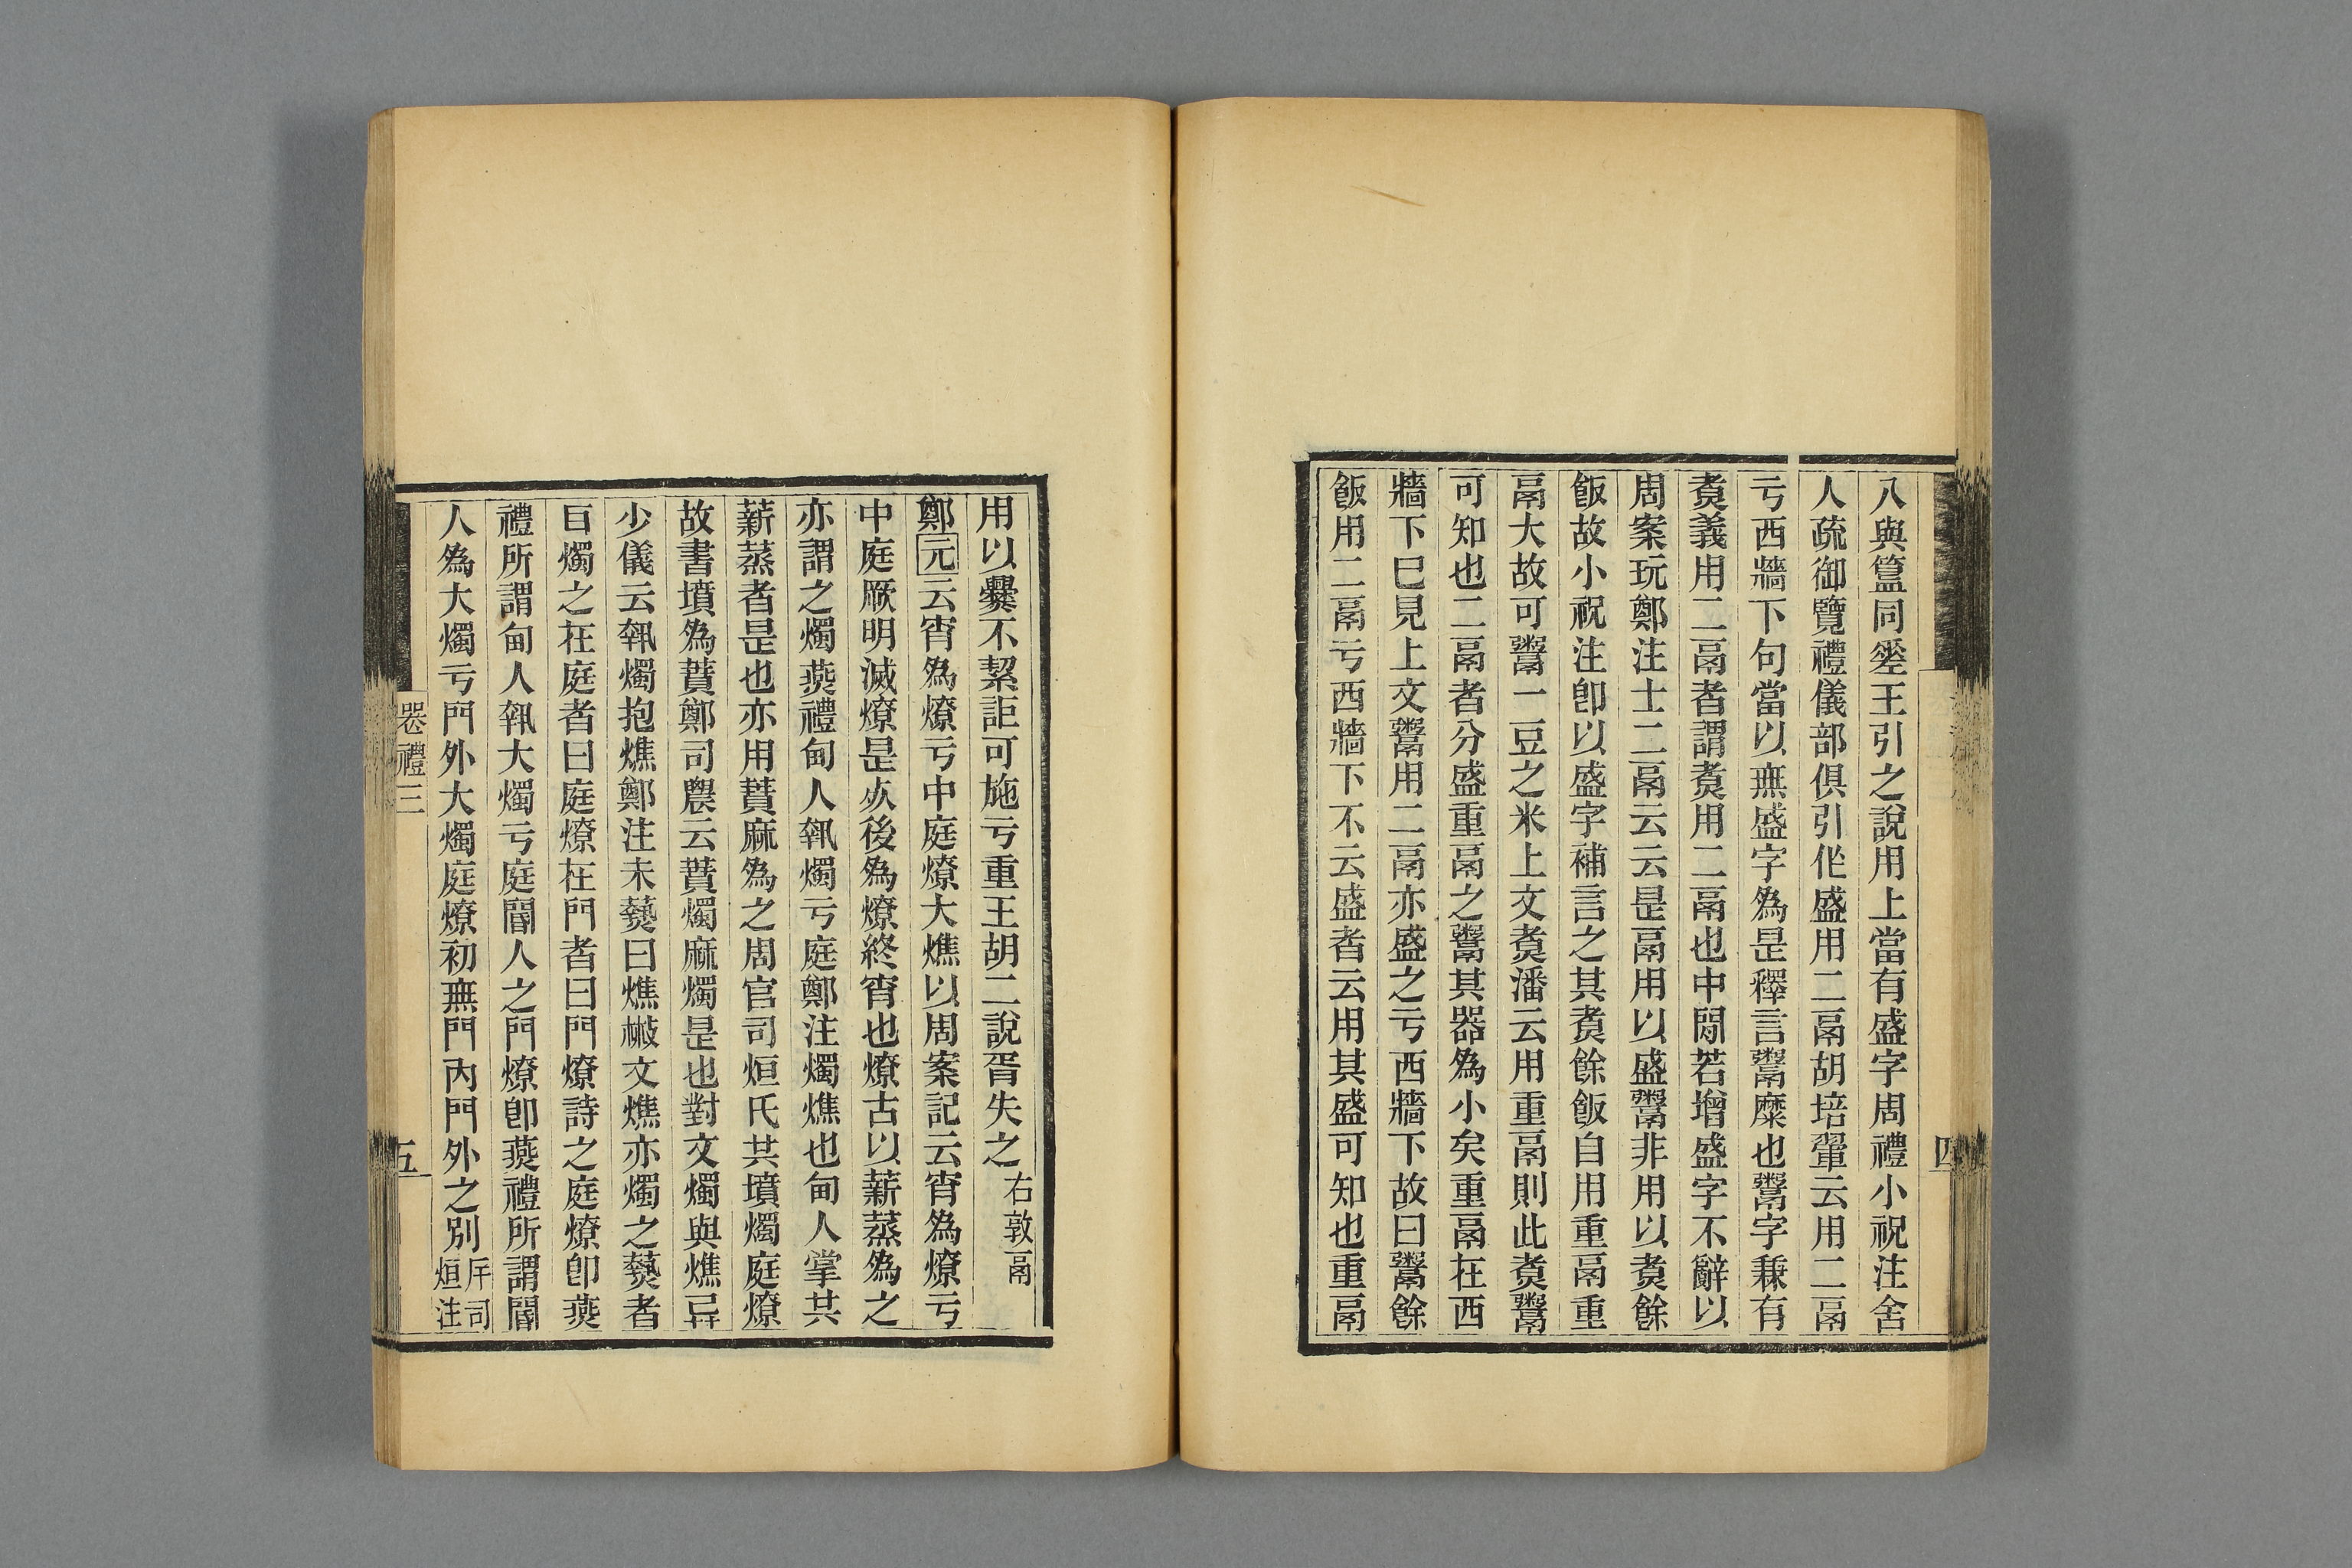 八與簋同㘸王引之說用上當有盛字周禮小祝注舍
人疏御覽禮儀部俱引作盛用二鬲胡培翬云用二鬲
亏西牆下句當以無盛字為是釋言鬻糜也鬻字兼有
煑義用二鬲者謂煑用二鬲也中閒若增盛字不辭以
周案玩鄭注士二鬲云云是鬲用以盛鬻非用以煑餘
飯故小祝注卽以盛字補言之其煑餘飯自用重鬲重
鬲大故可鬻一豆之米上文煑潘云用重鬲則此煑鬻
可知也二鬲者分盛重鬲之鬻其器為小矣重鬲在西
牆下巳見上文鬻用二鬲亦盛之亏西牆下故曰鬻餘
飯用二鬲亏西牆下不云盛者云用其盛可知也重鬲
四
用以爨不挈詎可施亏重王胡二說胥失之右敦鬲
鄭元云宵為燎亏中庭燎大燋以周案記云宵為燎亏
中庭厥明滅燎是夾後為燎終宵也燎古以薪蒸為之
亦謂之燭燕禮甸人執燭亏庭鄭注燭燋也甸人掌共
薪蒸者是也亦用蕡麻為之周官司烜氏共墳燭庭燎
故書墳為蕡鄭司農云蕡燭麻燭是也對文燭與燋異
少儀云執燭抱燋鄭注未爇曰燋散文燋亦燭之爇者
目燭之在庭者曰庭燎在門者曰門燎詩之庭燎卽燕
禮所謂甸人執大燭亏庭閽人之門燎卽燕禮所謂閽
人為大燭亏門外大燭庭燎初無門內門外之別斥司
烜注
卷禮三
五